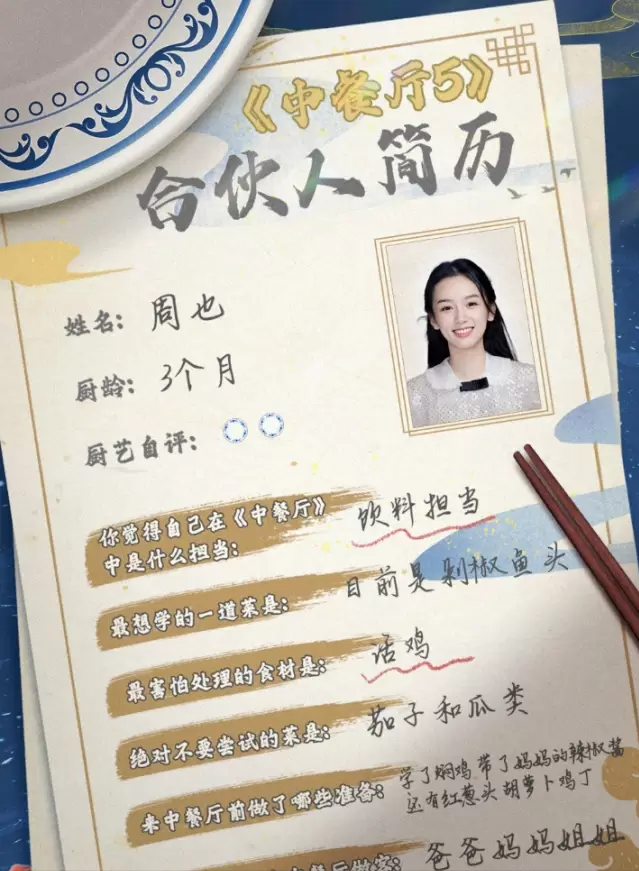 《中餐厅5》
合伙人简历
姓名: 周也
厨龄: 3个月
厨艺自评:
你觉得自己在《中餐厅》
中是什么担当: 饮料担当
最想学的一道菜是: 目前是剁椒鱼头
最害怕处理的食材是: 活鸡
绝对不要尝试的菜是: 茄子和瓜类
来中餐厅前做了哪些准备: 学了焖鸡 带了妈妈的辣椒酱
还有红葱头胡萝卜鸡丁
中餐厅做客: 爸爸妈妈姐姐